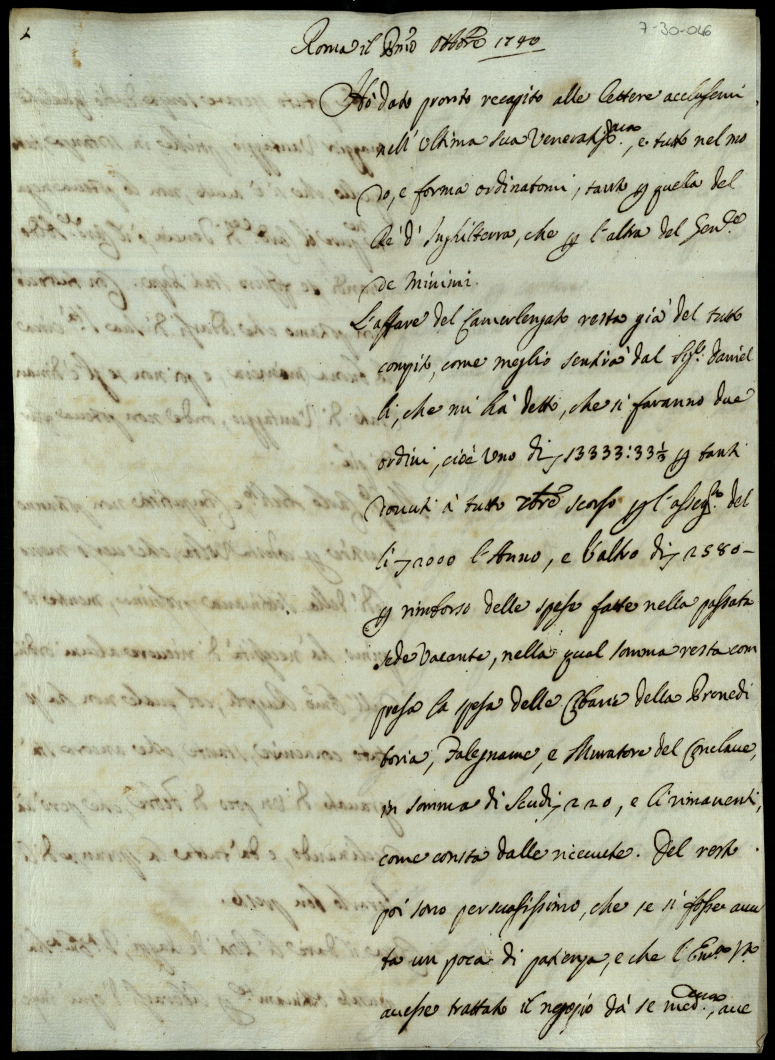 7-30-046
Roma il Pmo Ottbre 1740
Hò dato pronto recapito alle lettere acclusemi
nell'ultima sua Veneratissma, e tutto nel mo
do, e forma ordinatomi, tanto p quella del
Rè d'Inghilterra, che p l'altra del Genle
de Minimi.
L'affare del Camerlengato resta già del tutto
compito, come meglio sentirà dal Sigr Daniel
li, che mi hà detto, che si faranno due
ordini, cioè uno di 13333:33⅓ p tanti
douuti à tutto 7bre scorso p l'assegto del
li 2000 l'Anno, e l'altro di 2580 –
p rimborso delle spese fatte nella passata
Sede Vacante, nella qual somma resta com
presa la spesa delle Cibarie della
Falegname, e Muratore del Conclaue,
in somma di Scudi 220, e li rimanenti,
come consta dalle riceuute. Del resto
poi sono persuasissimo, che se si fosse auu
ta un poca di pazienza, e che l'Emza Va
auesse trattato il negozio dà se medma, aue